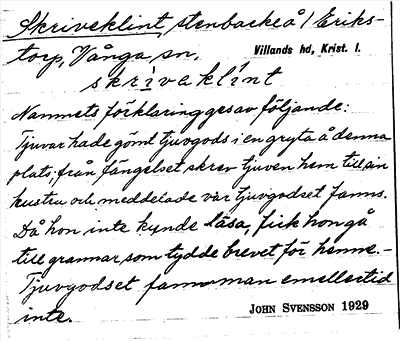 Skriveklint, stenbacke å 1 Eriks-
torp, Vånga sn.
Villands hd, Krist. l.
skrìvaklínt
Namnets förklaring ges av följande:
Tjuvar hade gömt tjuvgods i en gryta å denna
plats; från fängelset skrev tjuven hem till sin
hustru och meddelade var tjuvgodset fanns.
Då hon inte kynde läsa, fick hon gå
till grannar, som tydde brevet för henne.-
Tjuvgodset fann man emellertid
inte.
JOHN SVENSSON 1929